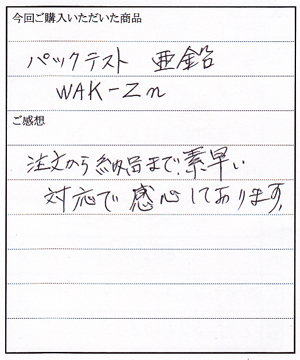 今回ご購入いただいた商品
パックテスト 亜鉛
WAK-Zn
ご感想
注文から納品まで、素早い
対応で感心しております。